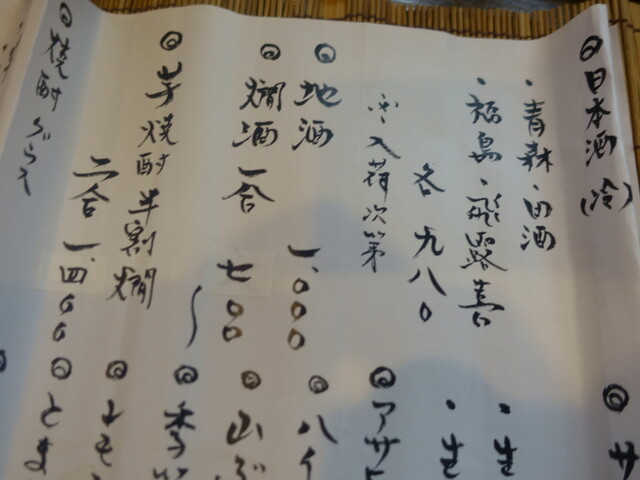 ◎日本酒(冷)
・青森・田酒
・福島・飛露喜
各 九八〇
入荷次第
◎地酒
一、〇〇〇
◎燗酒 一合 七〇〇
◎芋焼酎半割燗
二合 一、四〇〇
◎焼酎グラス
◎サ
・生
・生
◎アサヒ
◎ハイ
◎山ぶ
◎季節
◎レモ
◎とま